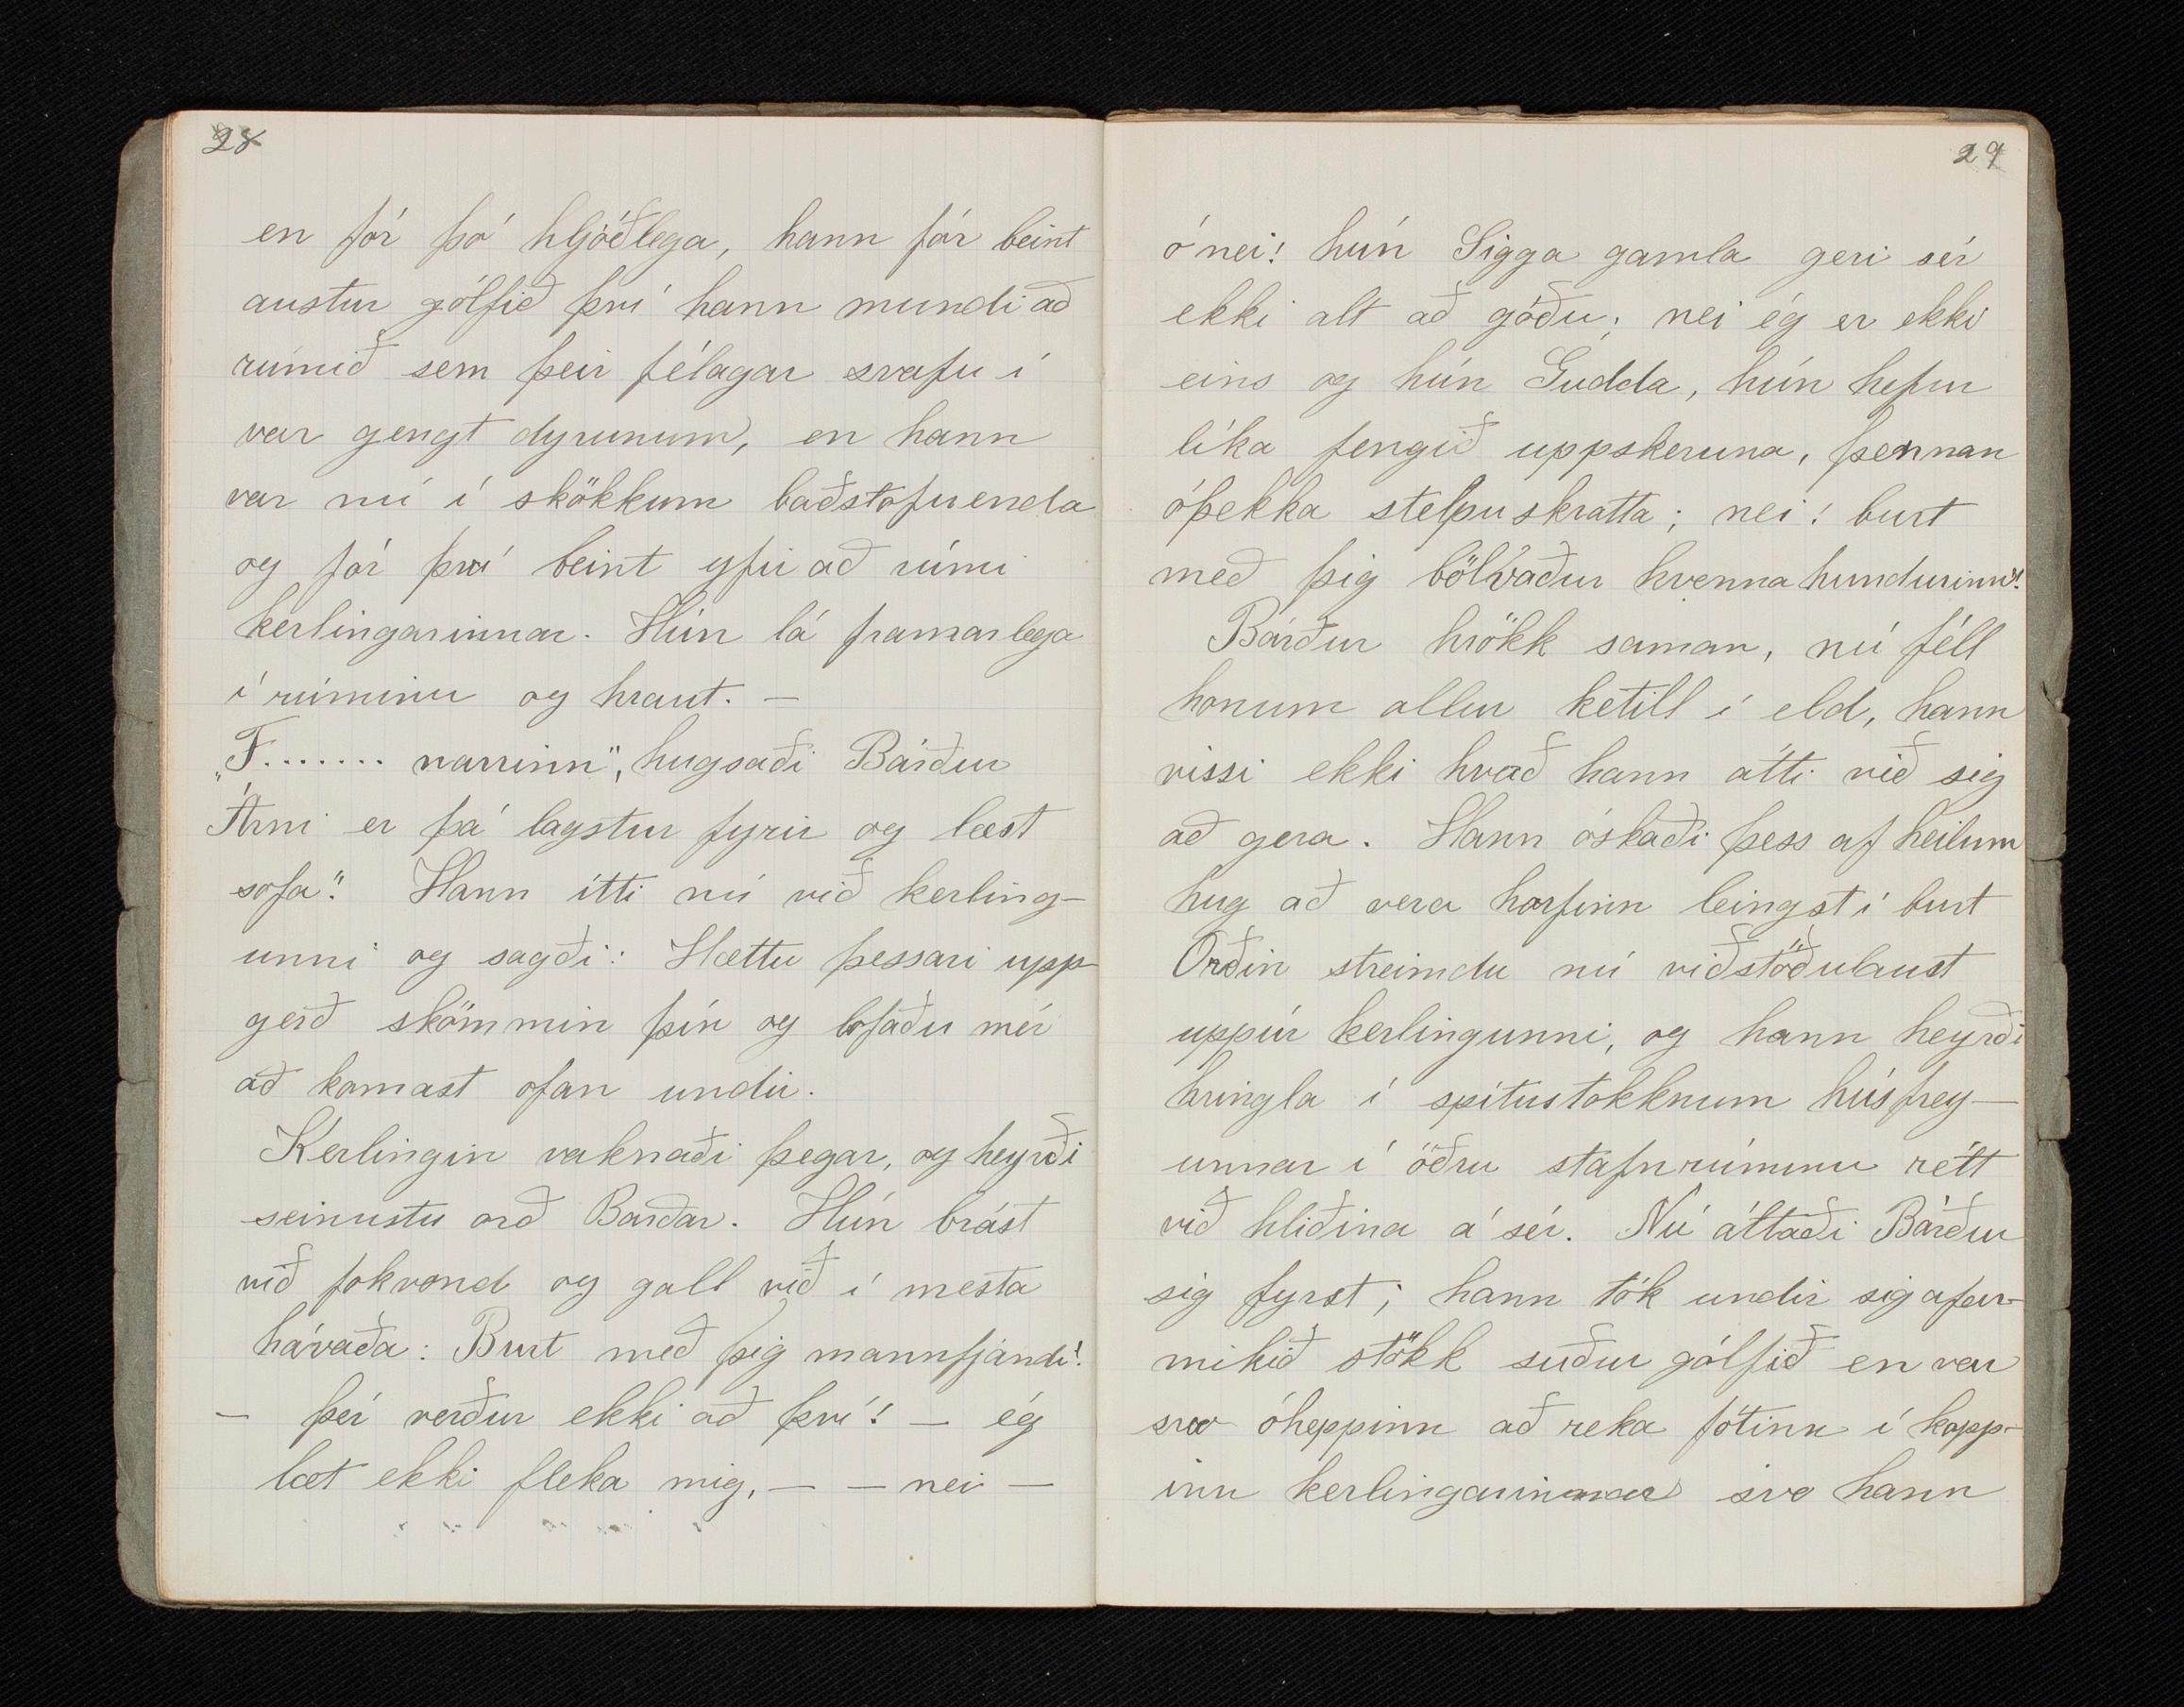 28
en fór þó hljóðlega, hann fór beint
austur gólfið því hann mundi að
rúmið sem þeir félagar svafu í
var gengt dyrunum, en hann
var nú í skökkum baðstofuenda
og fór því beint yfir að rúmi
kerlingarinnar. Hún lá framarlega
í rúminu og hraut. —
„F........ narrinn", hugsaði Bárður
Árni er þá lagstur fyrir og læst
sofa". Hann ítti nú við kerling-
unni og sagði: Hættu þessari upp-
gerð skömmin þín og lofaðu mér
að komast ofan undir.
Kerlingin vaknaði þegar, og heyrði
seinustu orð Barðar. Hún brást
við fokvond og gall við í mesta
hávaða: Burt með þig mannfjandi!
— þér verður ekki að því! — ég
læt ekki fleka mig, — — nei —
29
ó nei! hún Sigga gamla geri sér
ekki alt að góðu; nei ég er ekki
eins og hún Gudda, hún hefur
líka fengið uppskeruna, þennan
óþekka stelpuskratta; nei! burt
með þig bölvaður kvenna hundurinn!
Bárður hrökk saman, nú féll
honum allur ketill í eld, hann
vissi ekki hvað hann átti við sig
að gera. Hann óskaði þess af heilum
hug að vera horfinn leingst í burt
Orðin streimdu nú viðstöðulaust
uppúr kerlingunni, og hann heyrði
hringla í spítustokknum húsfrey-
unnar í öðru stafnrúminu rétt
við hliðina á sér. Nú áttaði Bárður
sig fyrst; hann tók undir sig afar-
mikið stökk suður gólfið en var
svo óheppinn að reka fótinn í kopp-
inn kerlingarinnar svo hann